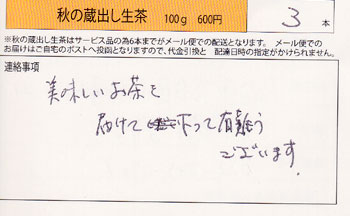 秋の蔵出し生茶 100g 600円 3 本
※秋の蔵出し生茶はサービス品の為6本までがメール便での配送となります。 メール便での
お届けはご自宅のポストへ投函となりますので、代金引換と 配達日時の指定がかけられません。
連絡事項
美味しいお茶を
届けて 下って有難う
ございます。